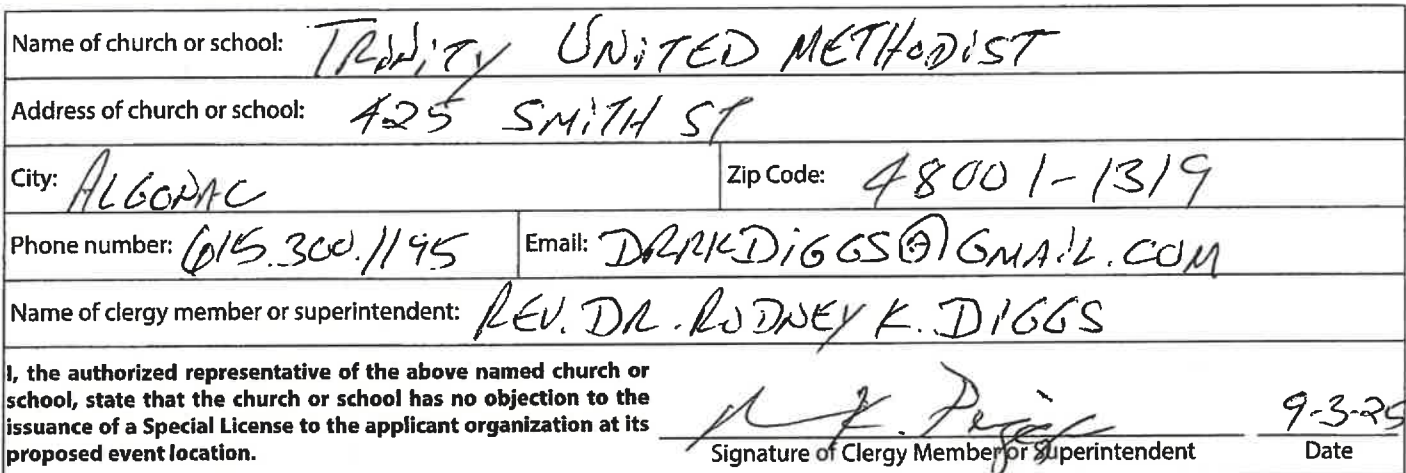 Name of church or school: TRINITY UNITED METHODIST
Address of church or school: 425 SMITH ST
City: ALGONAC Zip Code: 48001-1319
Phone number: 615.300.1195 Email: DRRKDIGGS@GMAIL.COM
Name of clergy member or superintendent: REV. DR. RODNEY K. DIGGS
I, the authorized representative of the above named church or
school, state that the church or school has no objection to the
issuance of a Special License to the applicant organization at its
proposed event location.
9-3-25
Signature of Clergy Member or Superintendent Date